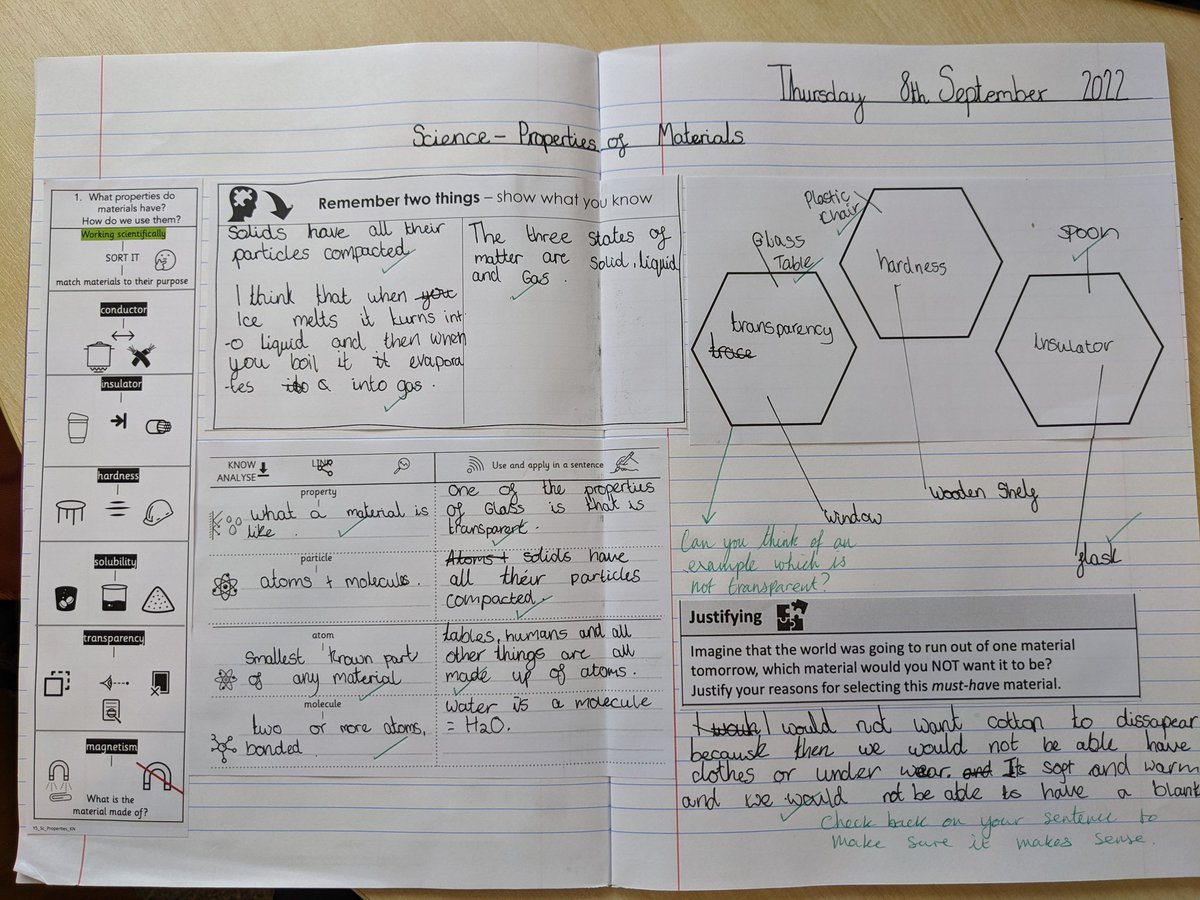 Thursday 8th September 2022
Science - Properties of Materials
1. What properties do
materials have?
How do we use them?
Working scientifically
SORT IT
match materials to their purpose
conductor
insulator
hardness
solubility
transparency
magnetism
What is the
material made of?
Y5_Sc_Properties_KN
Remember two things – show what you know
Solids have all their
particles compacted
I think that when you
Ice melts it turns int
-o liquid and then when
you boil it it evapora
-tes ito a into gas.
The three states of
matter are solid, liquid
and Gas.
KNOW
ANALYSE
LINK
Use and apply in a sentence
property
what a material is
like.
one of the properties
of Glass is that is
transparent.
particle
atoms + molecules.
Atoms + solids have
all their particles
compacted.
atom
smallest known part
of any material
tables, humans and all
other things are all
made up of atoms.
molecule
two or more atoms,
bonded
water is a molecule
= H2O.
Plastic
chair
Glass
Table
spoon
hardness
transparency
Insulator
wooden shelf
window
flask
Can you think of an
example which is
not transparent?
Justifying
Imagine that the world was going to run out of one material
tomorrow, which material would you NOT want it to be?
Justify your reasons for selecting this must-have material.
I would not want cotton to dissapear
because then we would not be able have
clothes or under wear. and Its soft and warm
and we would not be able to have a blank
Check back on your sentence to
make sure it makes sense.